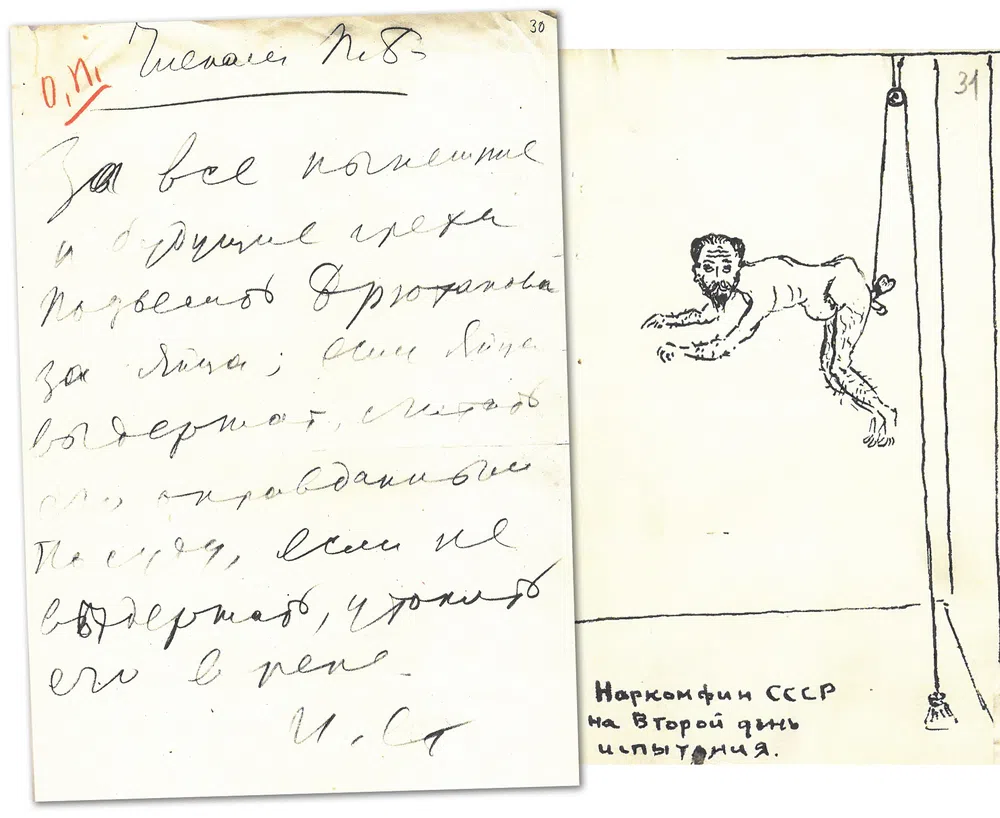 30
О.П.
Членам П.Б.
За все нынешние
и будущие грехи
подвесить Брюханова
за яйца; если яйца
выдержат, считать
его оправданным
по суду, если не
выдержат, утопить
его в реке.
И. Ст
31
Наркомфин СССР
на Второй день
испытания.